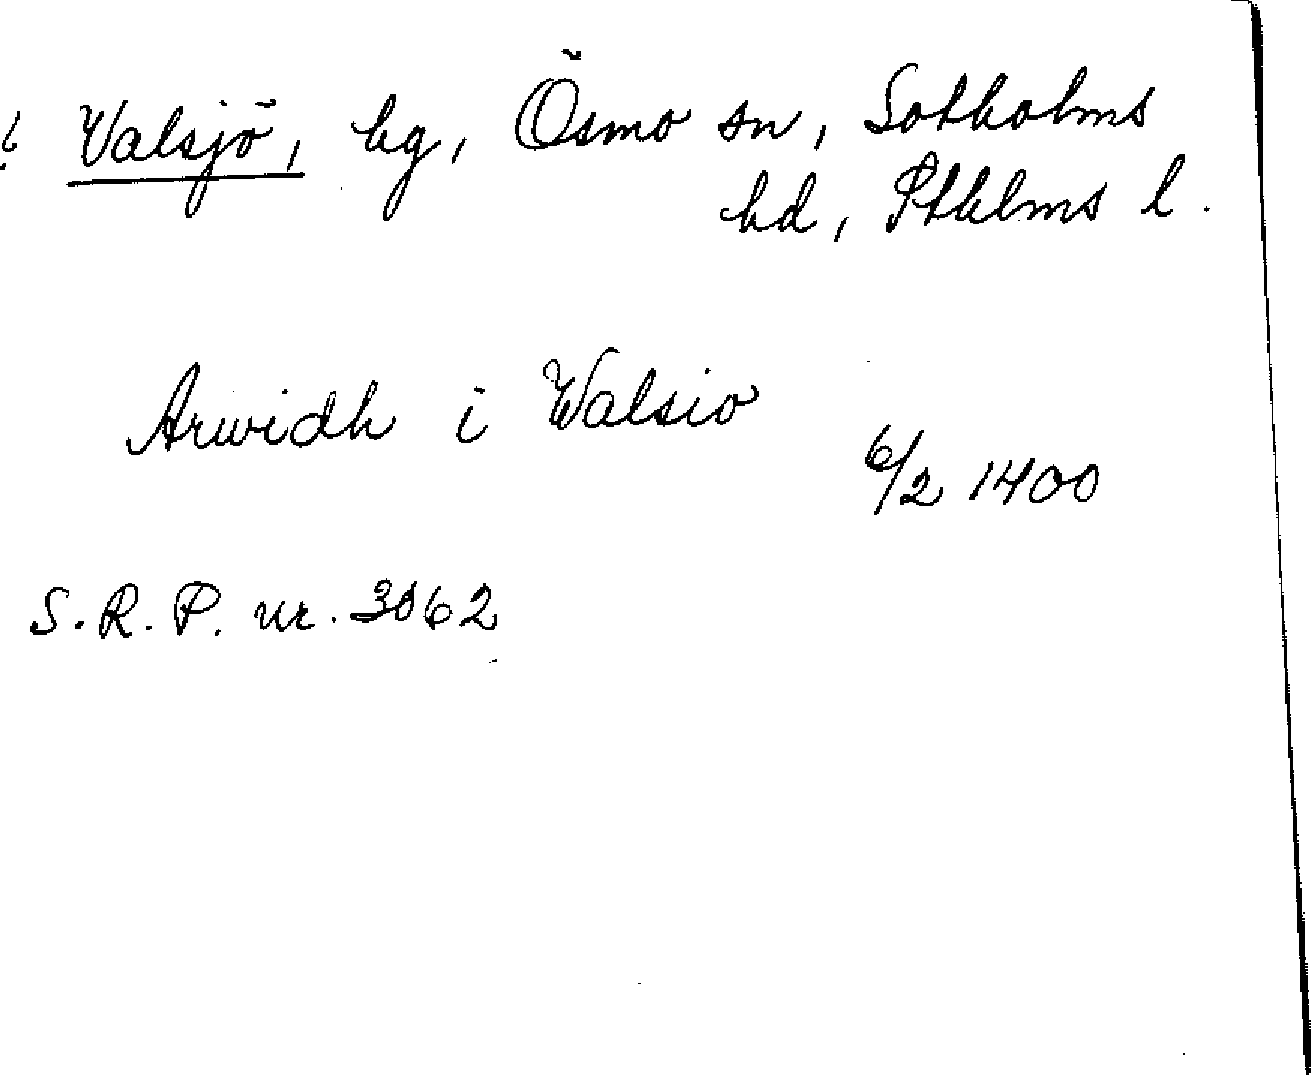 Valsjö, hg, Ösmo sn, Sotholms
hd, Sthlms l.
Arwidh i Walsio
6/2 1400
S.R.P. nr. 3062